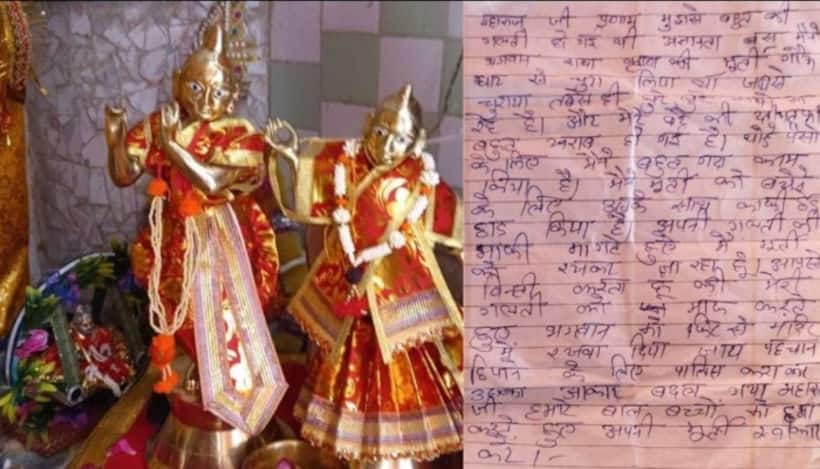 महाराज जी प्रणाम मुझसे बहुत बड़ी
गलती हो गई थी अनानता बस मैने
भगवान राधा कृष्ण की मुर्ती
से चुरा लिया था जबसे
चुराया तबसे ही
रहे है। और मेरे बेटे की
बहुत खराब हो गई है। थोडे पैसो
के लिए मैने बहुत गंदा काम
किया है। मैने मुर्ती को बेचने
के लिए उसके साथ काफी छेड
छाड किया है अपनी गलती की
माफी मागते हुए मै मुर्ती
को रखकर जा रहा हूँ। आपसे
विनती करता हू की मेरी
गलती को माफ करते
हुए भगवान को फिर से मंदिर
में रखवा दिया जाय पहचान
छिपाने के लिए पालिस करा कर
उसका आकार बदल गया महाराज
जी हमारे बाल बच्चो को क्षमा
करते हुए अपनी मुर्ती स्वीकार
करे।-